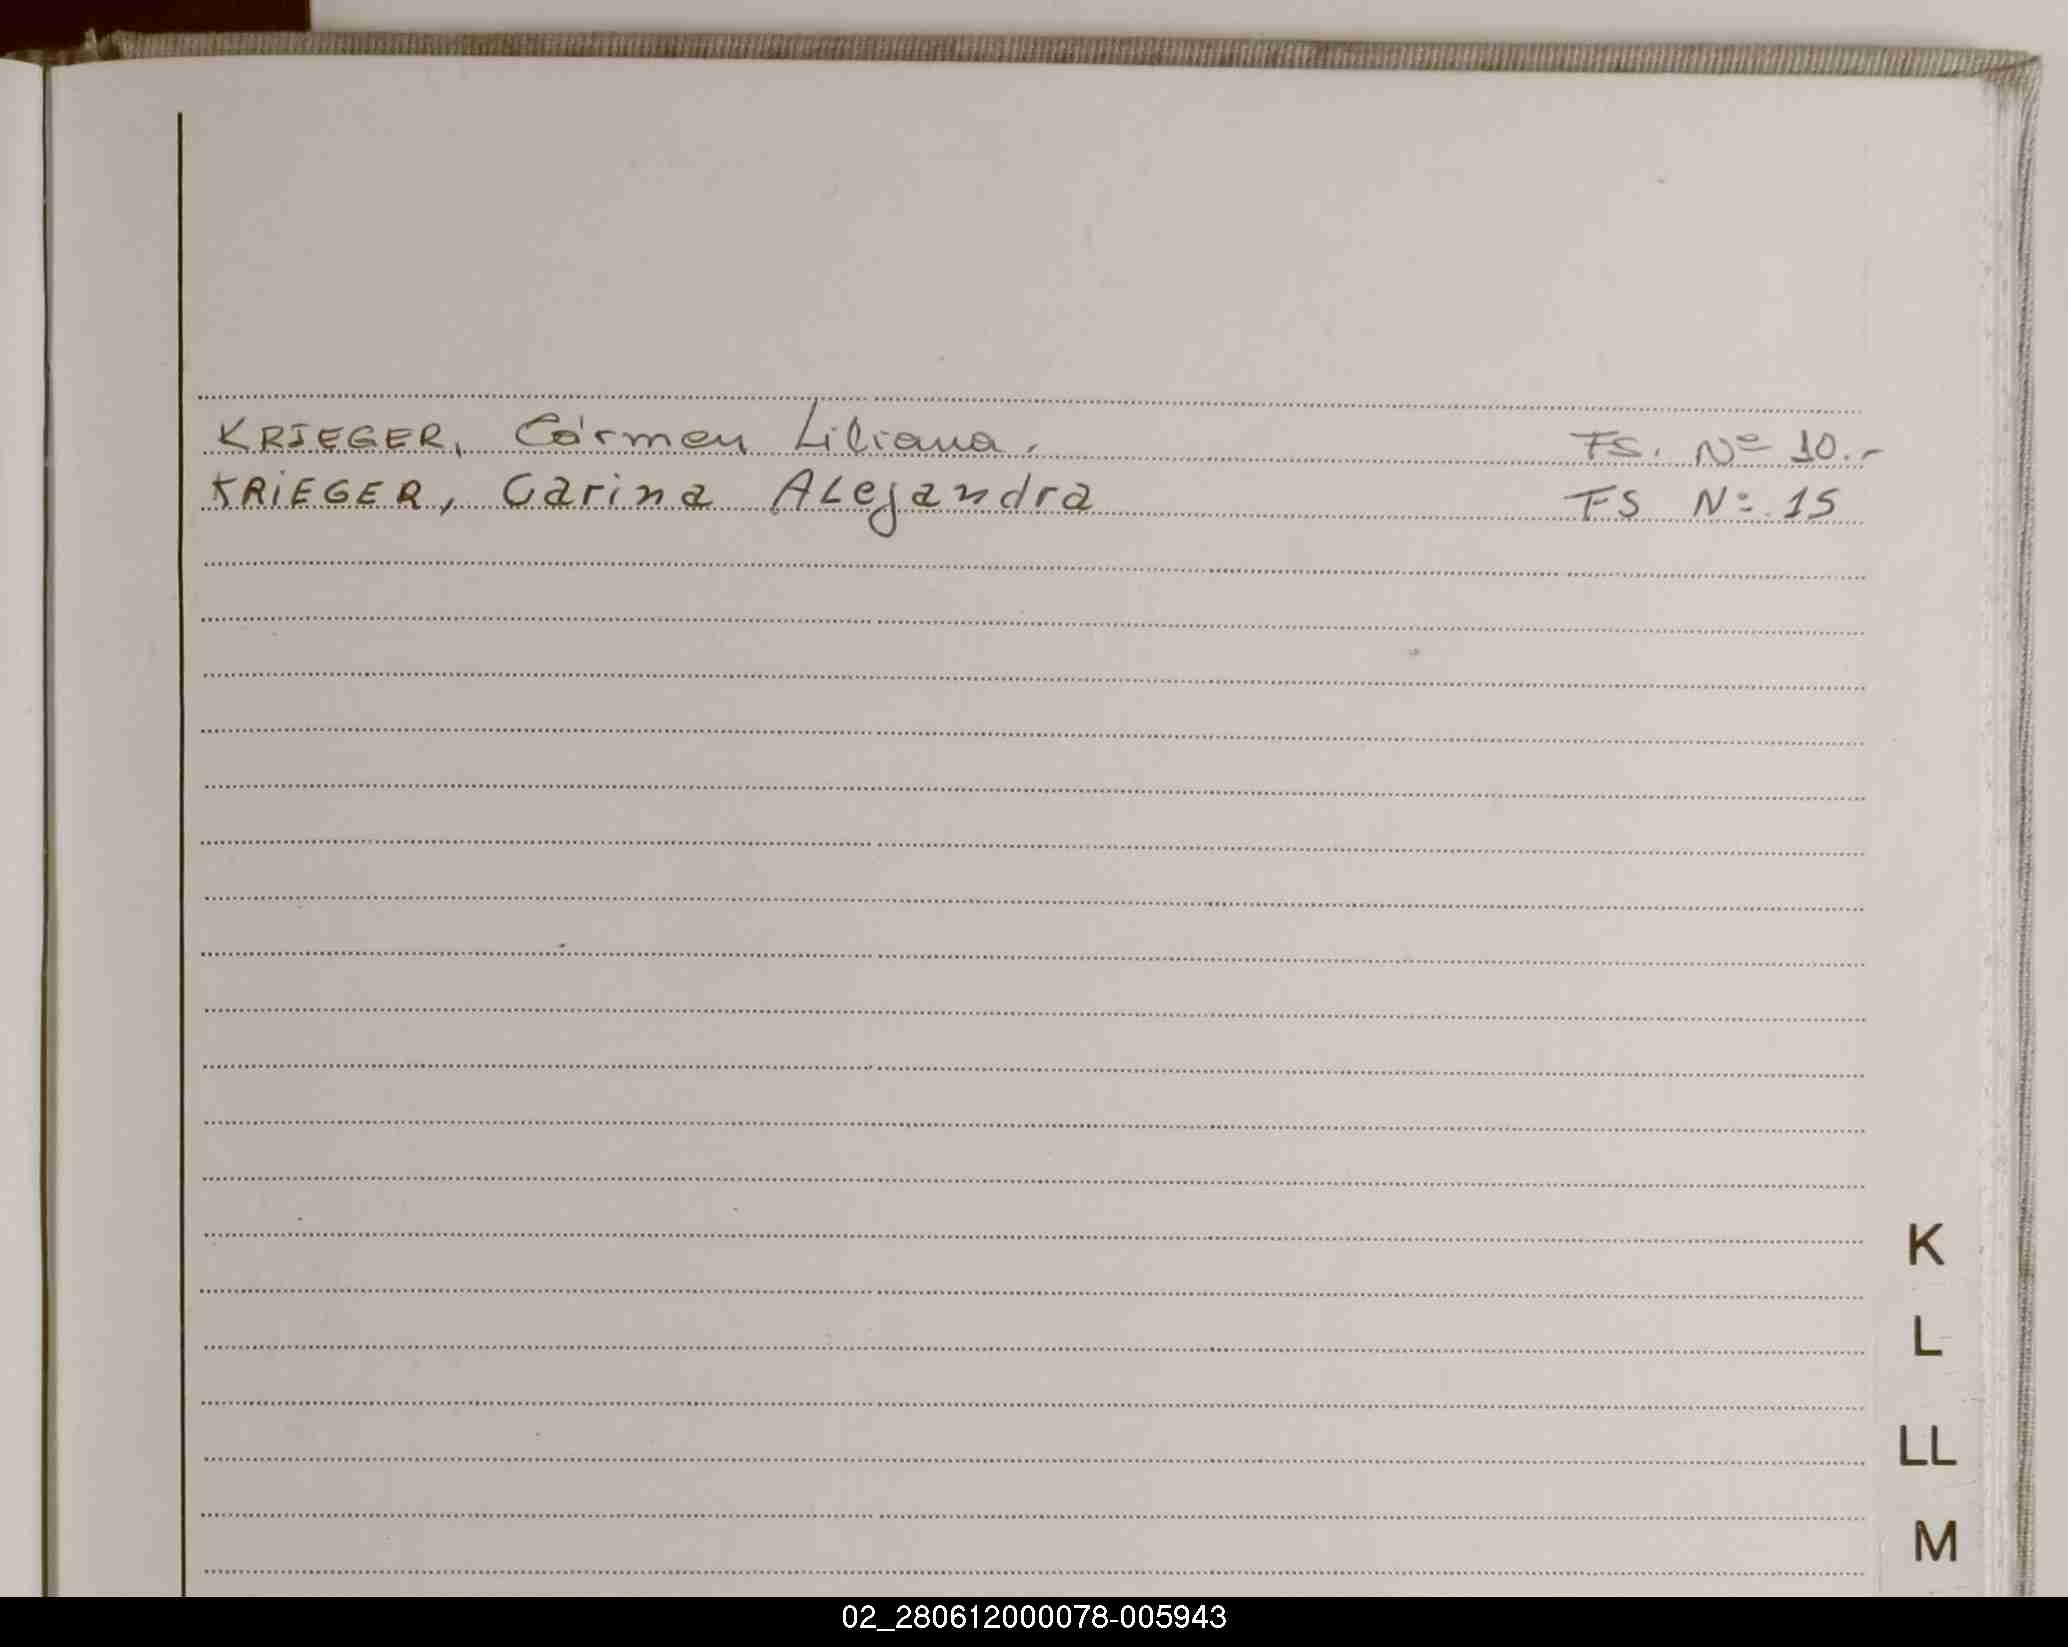 KRIEGER, Cármen Liliana. FS. Nº 10.-
KRIEGER, Carina Alejandra FS Nº 15
K
L
LL
M
02_280612000078-005943